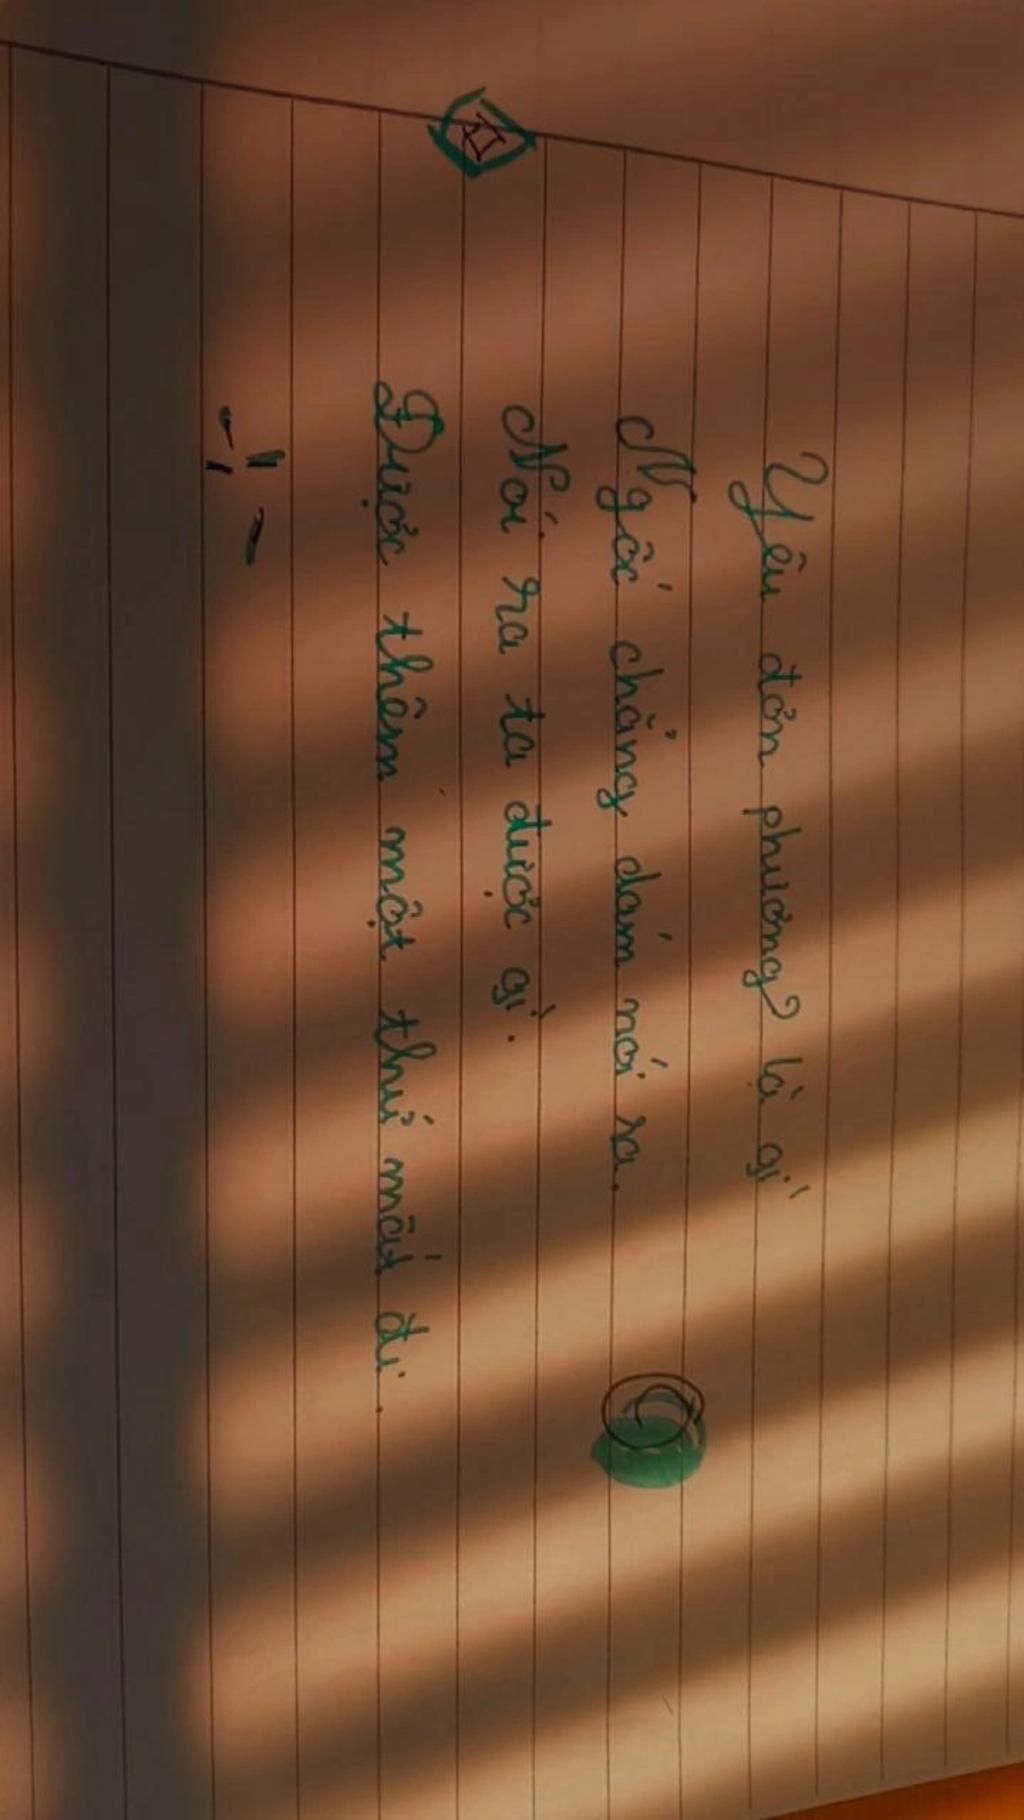 Yêu đơn phương? là gì
Ngốc chẳng dám nói ra.
Nói ra ta được gì.
Được thêm một thứ mất đi.